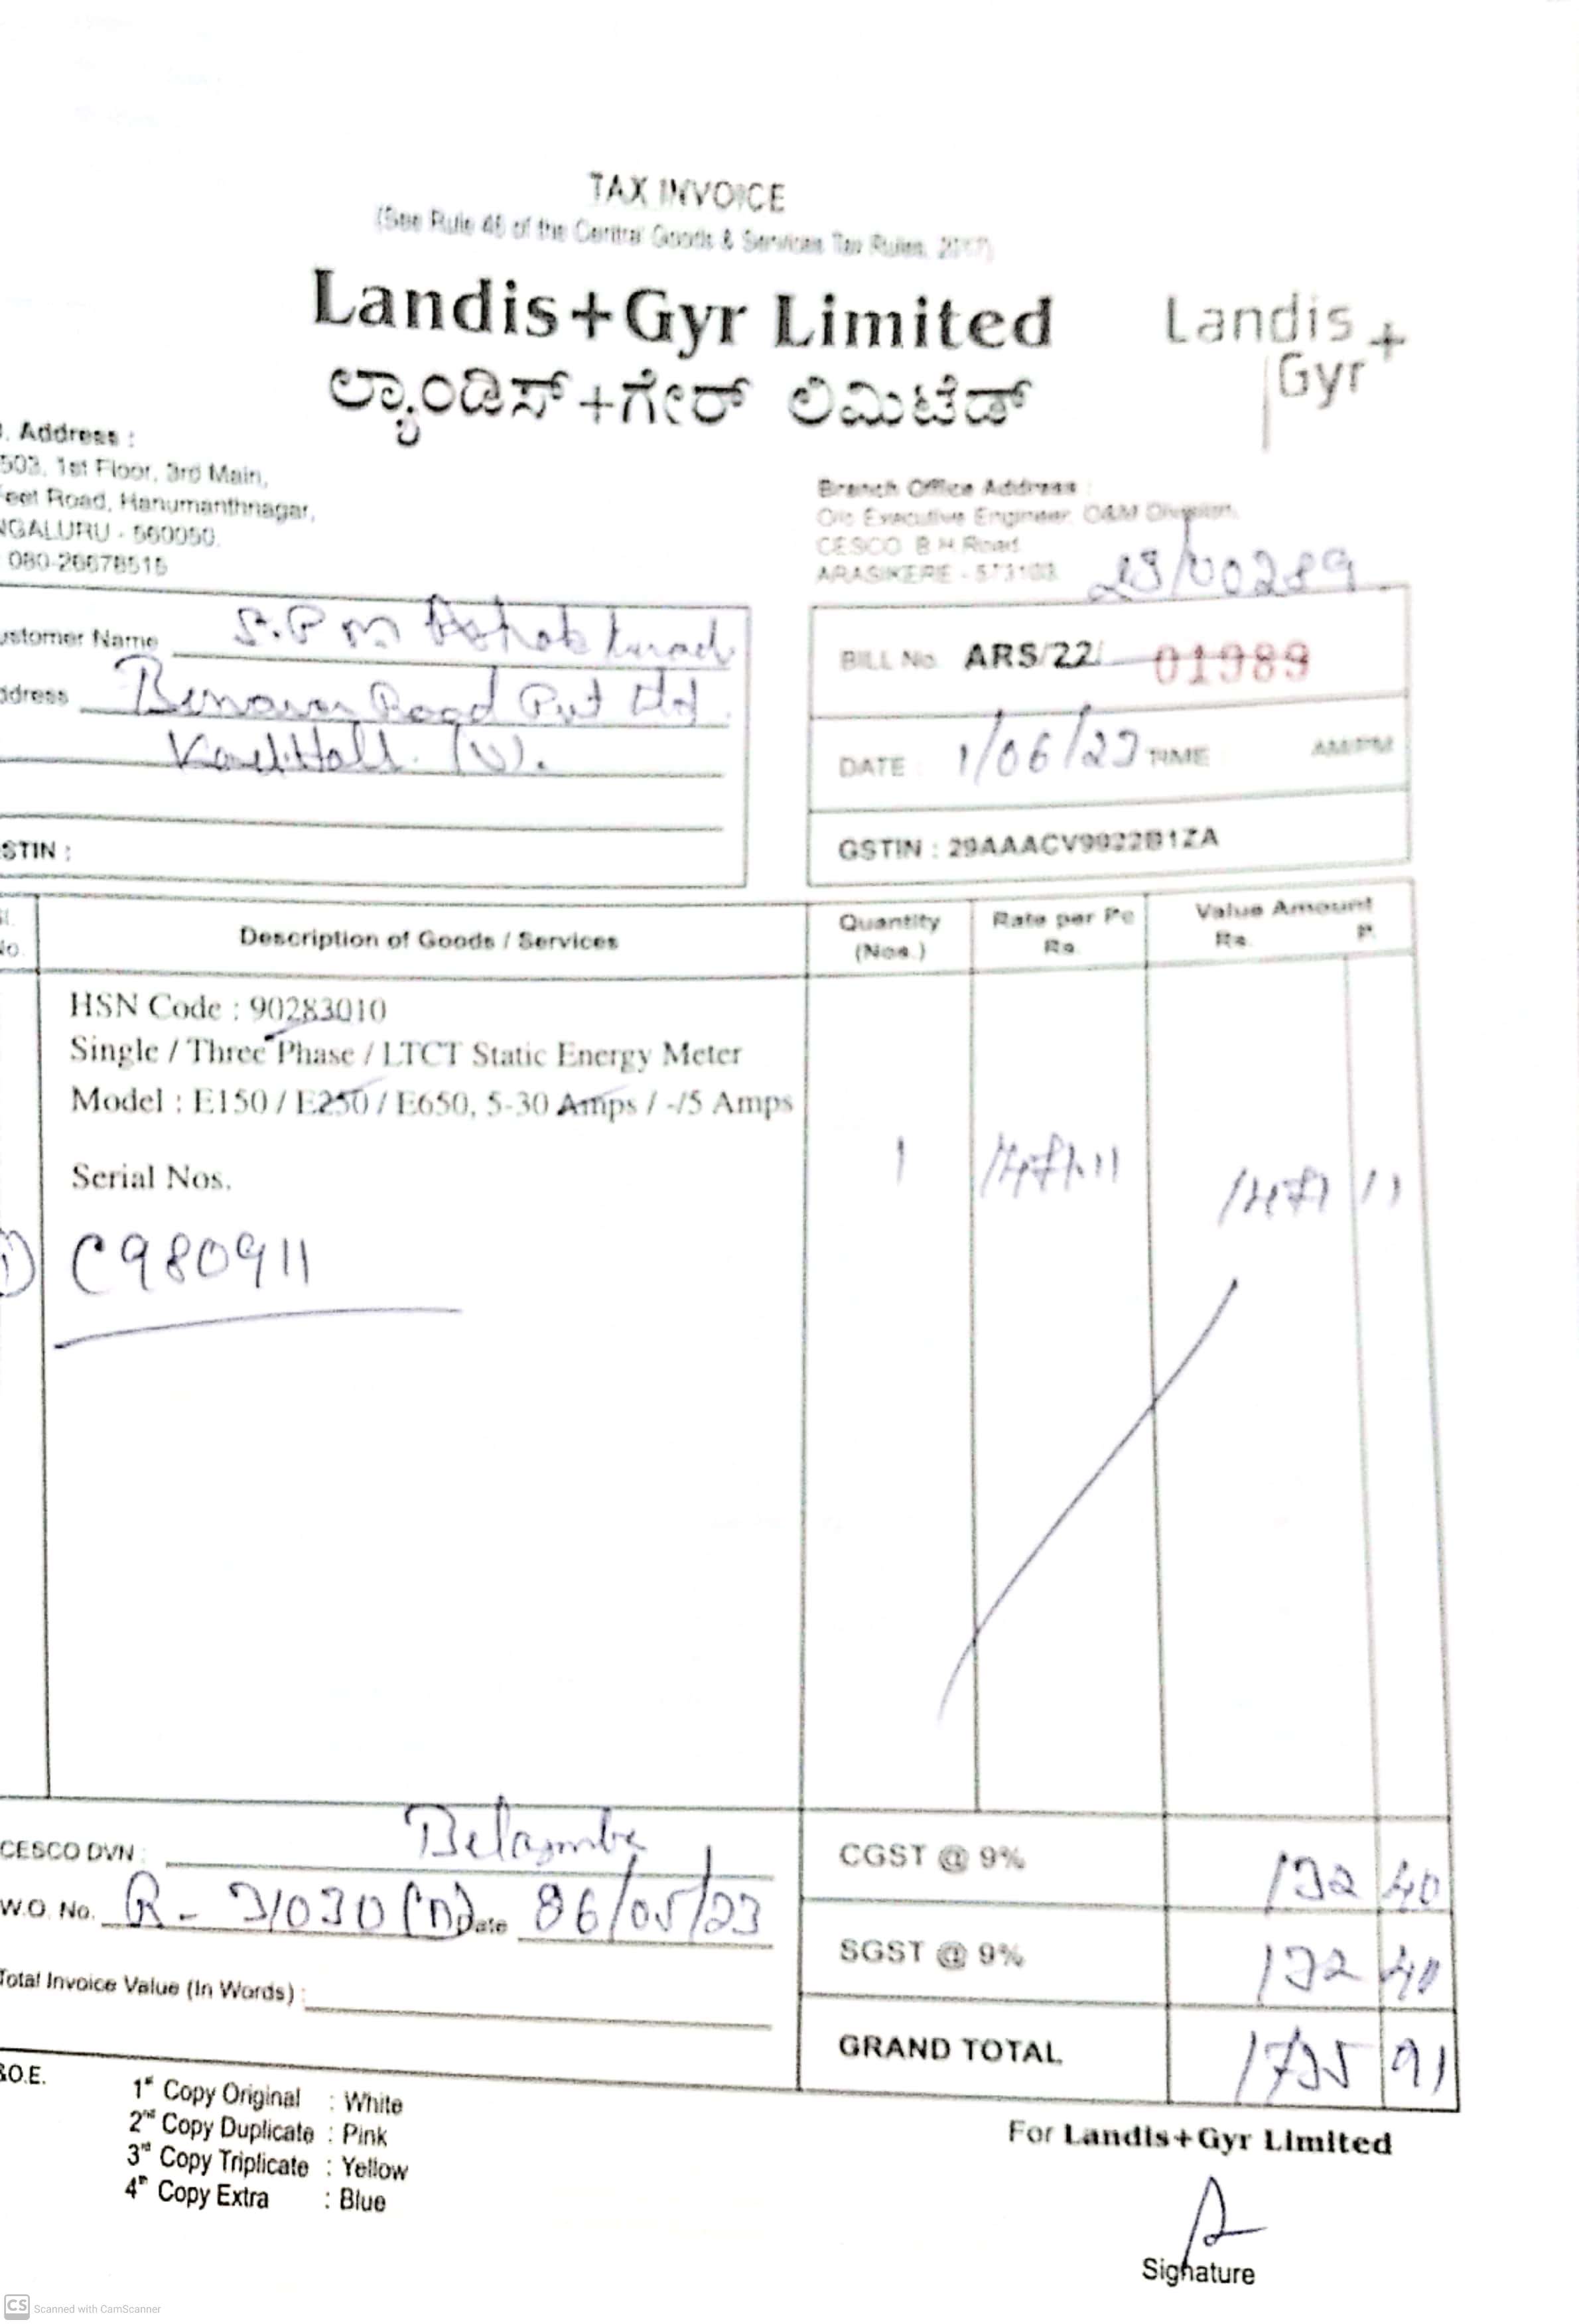 TAX INVOICE
(See Rule 46 of the Central Goods & Services Tax Rules, 2017)
Landis+Gyr Limited
Landis+
Gyr
ಲ್ಯಾಂಡಿಸ್+ಗೇರ್ ಲಿಮಿಟೆಡ್
. Address :
503, 1st Floor, 3rd Main,
Feet Road, Hanumanthnagar,
NGALURU - 560050.
080-26678515
Branch Office Address :
O/o Executive Engineer, O&M Division,
CESCO, B H Road
ARASIKERE - 573103
23/00289
ustomer Name S.P.m Ashok
ddress Road Pvt Ltd
(V).
STIN :
BILL No. ARS/22/ 01989
DATE : 1/06/23 TIME : AM/PM
GSTIN : 29AAACV9922B1ZA
Sl. No.
Description of Goods / Services
Quantity (Nos.)
Rate per Pc Rs.
Value Amount Rs. P.
HSN Code : 90283010
Single / Three Phase / LTCT Static Energy Meter
Model : E150 / E250 / E650, 5-30 Amps / -/5 Amps
Serial Nos.
1 1471.11 1471 11
1) C980911
CESCO DVN :
W.O. No. R- 31030 Date 26/05/23
Total Invoice Value (In Words) :
CGST @ 9% 132 40
SGST @ 9% 132 40
GRAND TOTAL 1735 91
&O.E.
1st Copy Original : White
2nd Copy Duplicate : Pink
3rd Copy Triplicate : Yellow
4th Copy Extra : Blue
For Landis+Gyr Limited
Signature
CS Scanned with CamScanner